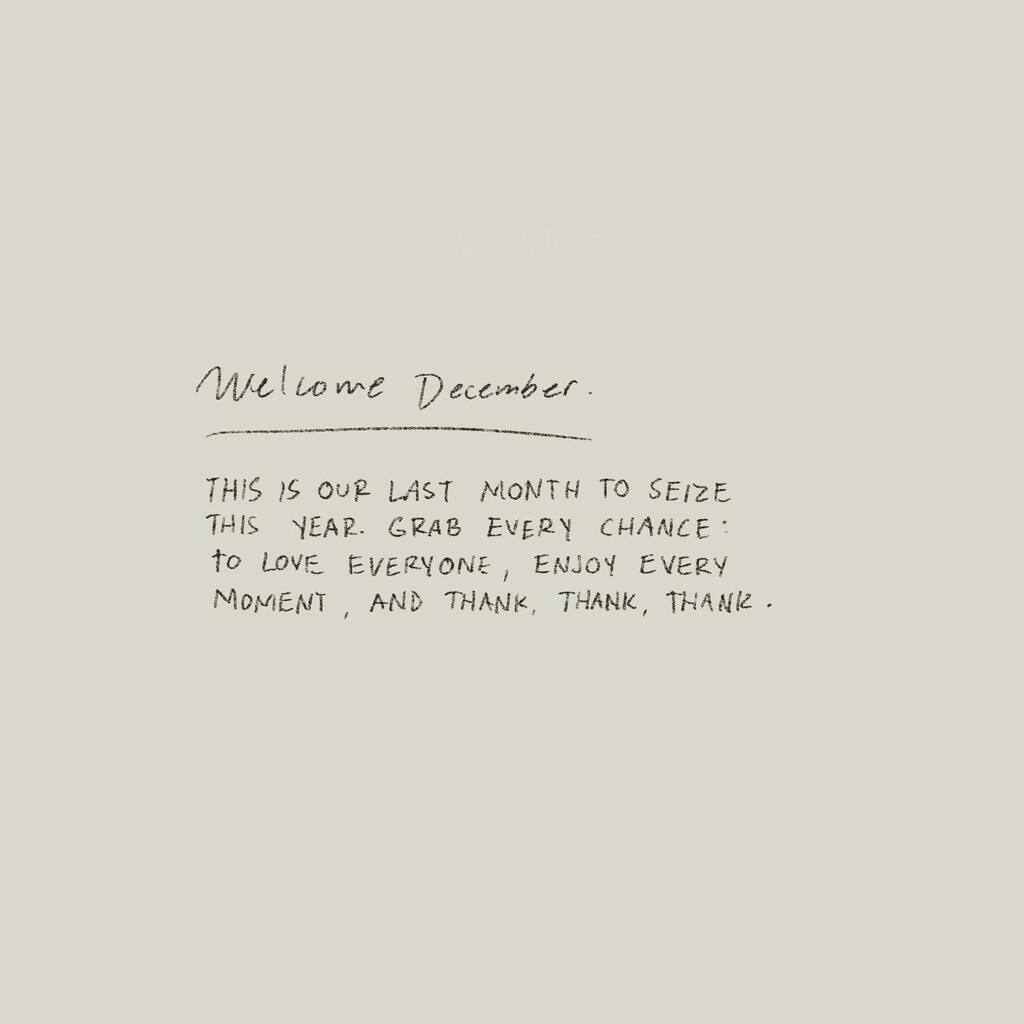 Welcome December.
THIS IS OUR LAST MONTH TO SEIZE
THIS YEAR. GRAB EVERY CHANCE:
to LOVE EVERYONE, ENJOY EVERY
MOMENT, AND THANK, THANK, THANK.